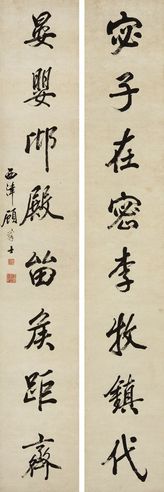 宓子在密李牧鎮代
晏嬰邶殿留侯距齊
西津顧